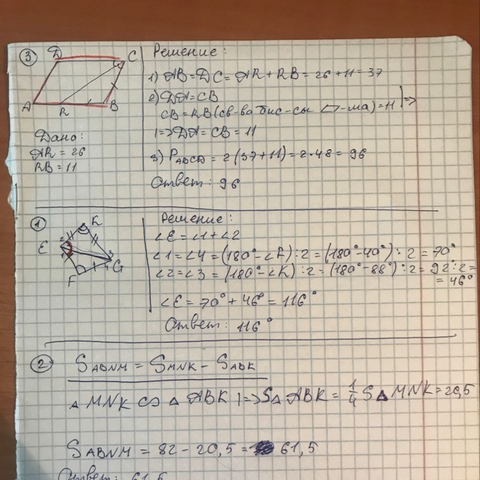 ③
D
C
A
R
B
Дано:
AR = 26
RB = 11
Решение:
1) AB = DC = AR + RB = 26 + 11 = 37
2) DA = CB
CB = RB (св-ва бис-сы ▱-ма) = 11 | =>
| => DA = CB = 11
3) P ABCD = 2(37+11) = 2·48 = 96
Ответ: 96
①
K
E
G
F
Решение:
∠E = ∠1 + ∠2
∠1 = ∠4 = (180° - ∠F) : 2 = (180° - 40°) : 2 = 70°
∠2 = ∠3 = (180° - ∠K) : 2 = (180° - 88°) : 2 = 92 : 2 =
= 46°
∠E = 70° + 46° = 116°
Ответ: 116°
②
S ABNM = S MNK - S ABK
△ MNK ∽ △ ABK | => S△ ABK = 1/4 S△ MNK = 20,5
S ABNM = 82 - 20,5 = 61,5
Ответ: 61,5